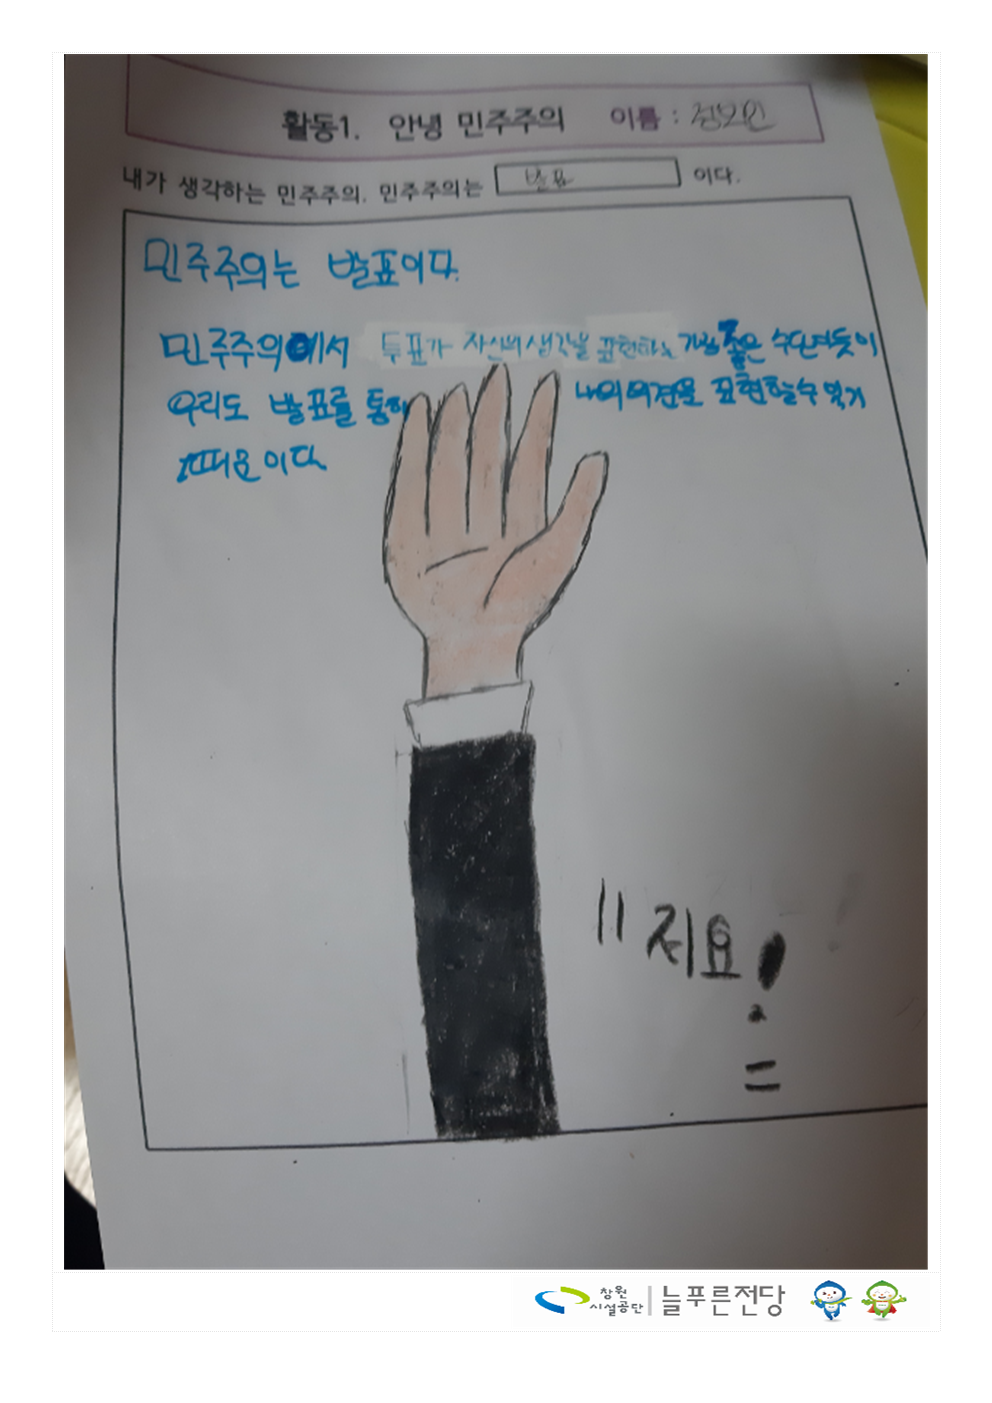 활동1. 안녕 민주주의 이름 : 정보인
내가 생각하는 민주주의. 민주주의는 발표 이다.
민주주의는 발표이다.
민주주의에서 투표가 자신의 생각을 표현하는 가장 좋은 수단이듯이
우리도 발표를 통해 나의 의견을 표현할 수 있기
때문이다.
"저요!"
창원
시설공단
늘푸른전당